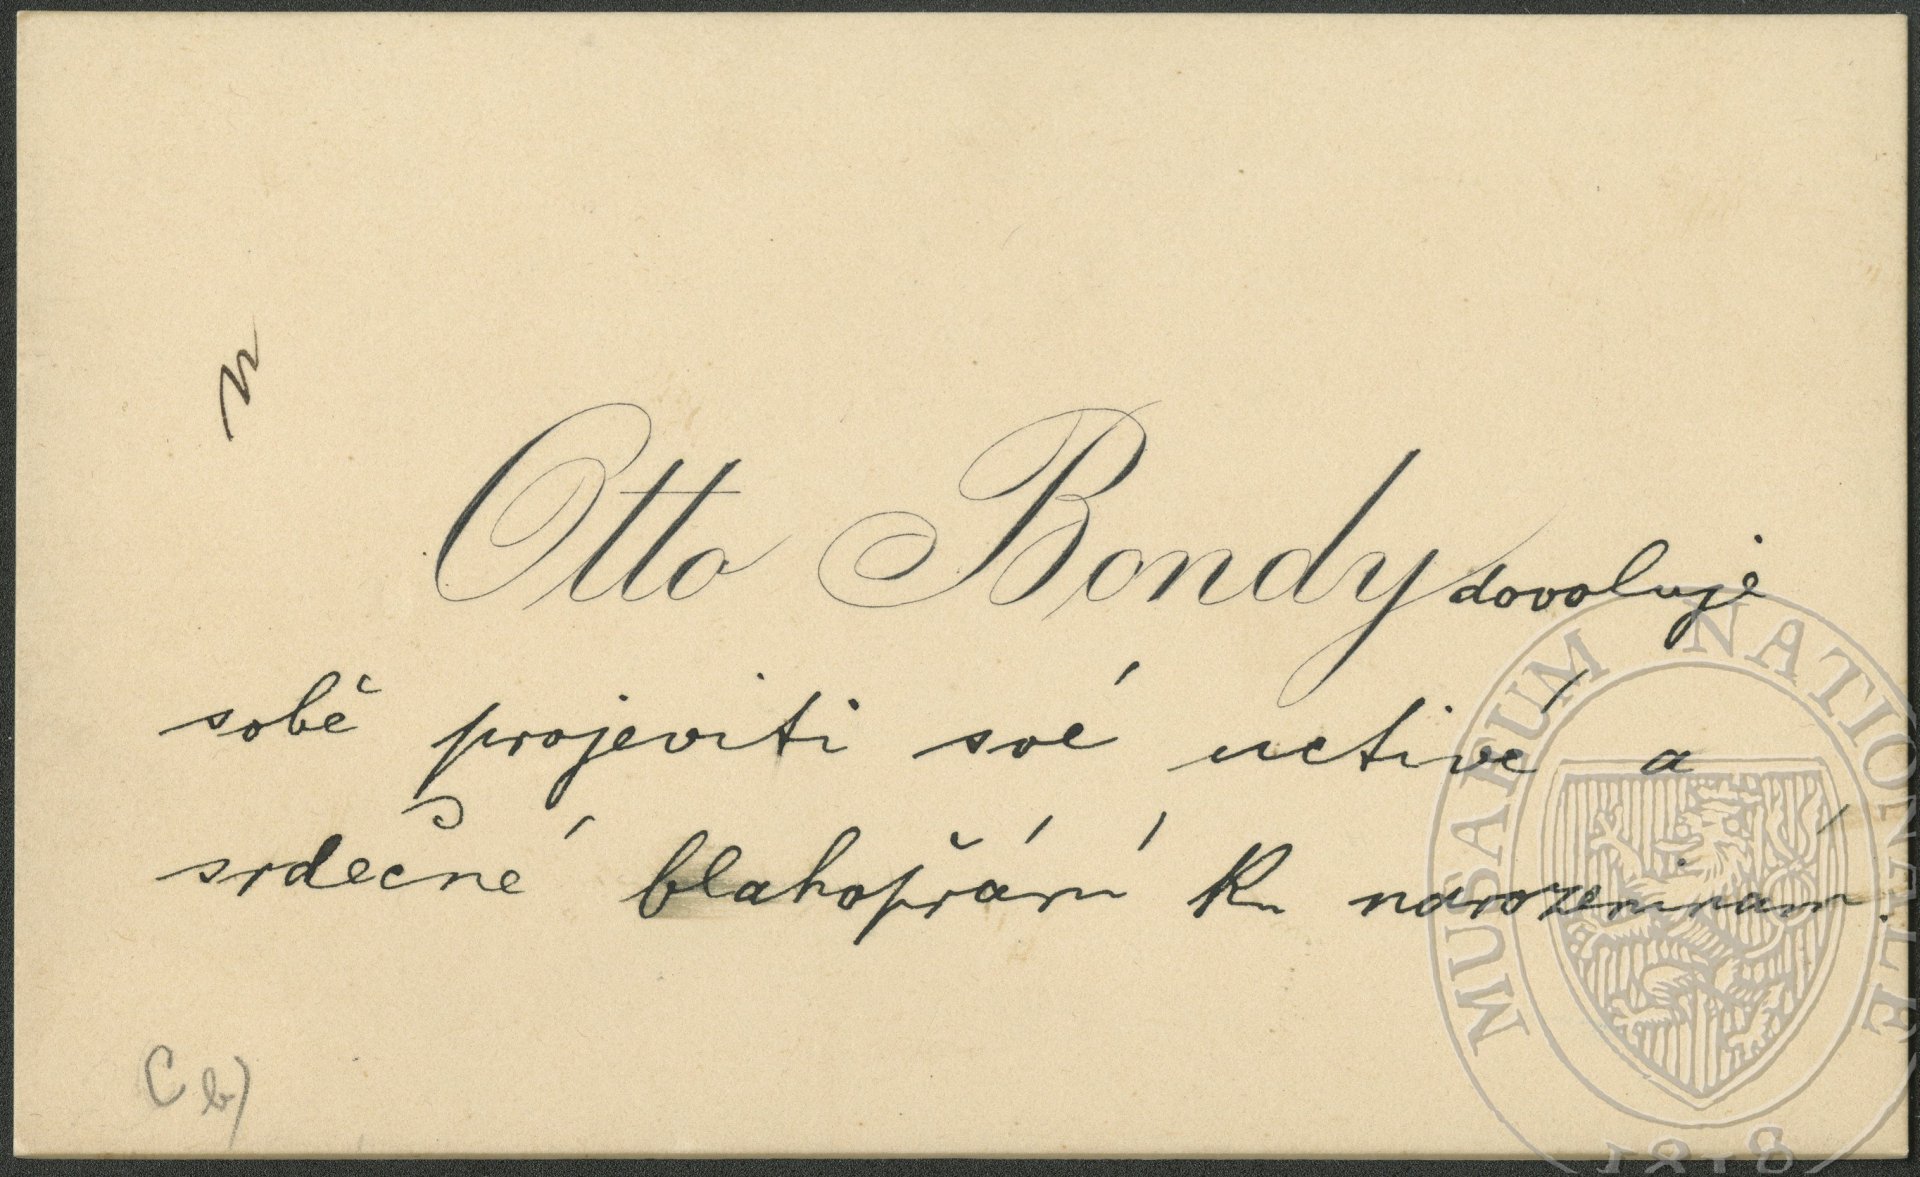 Otto Bondy dovoluje
sobě projeviti své uctivé a
srdečné blahopřání k narozeninám.
C b)
MUSAEUM NATIONALE
1818